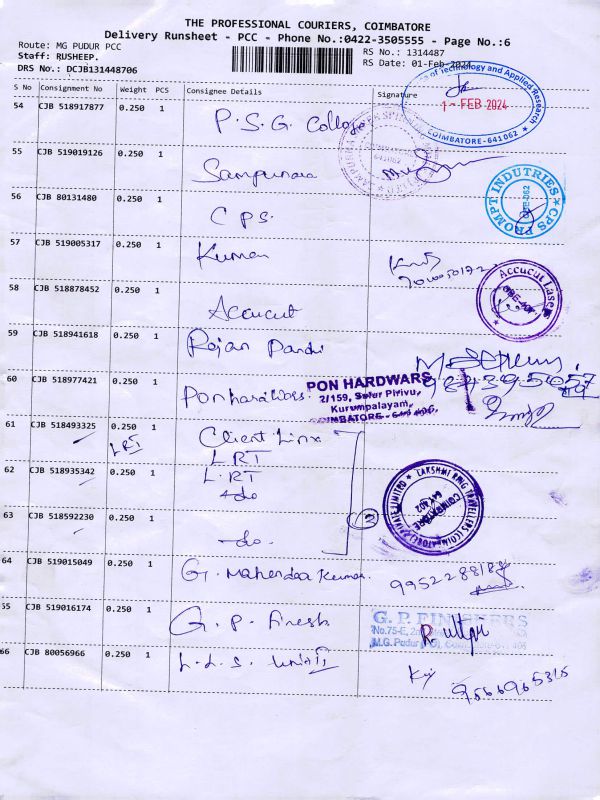 THE PROFESSIONAL COURIERS, COIMBATORE
Delivery Runsheet - PCC - Phone No.:0422-3505555 - Page No.:6
Route: MG PUDUR PCC
RS No.: 1314487
Staff: RUSHEEP.
RS Date: 01-Feb-2024
DRS No.: DCJB131448706
S No Consignment No Weight PCS Consignee Details Signature
of Technology and Applied Research
1 - FEB 2024
COIMBATORE-641062
54 CJB 518917877 0.250 1 P.S.G. College
55 CJB 519019126 0.250 1 Sampurna
56 CJB 80131480 0.250 1 C P S.
CPS PROMPT INDUTRIES
57 CJB 519005317 0.250 1 Kumar
58 CJB 518878452 0.250 1 Accucut
Accucut Laser
59 CJB 518941618 0.250 1 Rajan Pandi
60 CJB 518977421 0.250 1 Ponhardwars.
PON HARDWARS
2/159, Sulur Pirivu,
Kurumpalayam,
COIMBATORE
61 CJB 518493325 0.250 1 Client Linx
LRT LRT
62 CJB 518935342 0.250 1 L.RT
-do
LAKSHMI RING TRAVELLERS (COIMBATORE) PRIVATE LIMITED
COIMBATORE
641 402
63 CJB 518592230 0.250 1 -do.
3
64 CJB 519015049 0.250 1 G. Mahendra Kumar. 9952288188
65 CJB 519016174 0.250 1 G. P. Finesh
G. P. FINISHERS
No.75-E,
M.G. Pudur
66 CJB 80056966 0.250 1 L.L.S. Unit II
9566965315